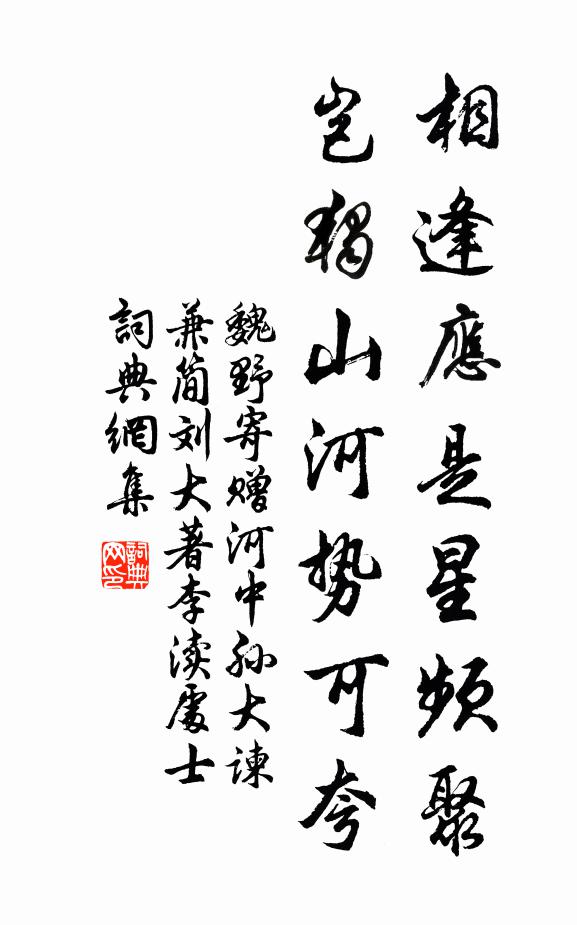 相逢應是星頻聚
豈獨山河勢可夸
魏野寄贈河中孙大諫
兼简刘大著李渎處士
詞典網集
詞典网印